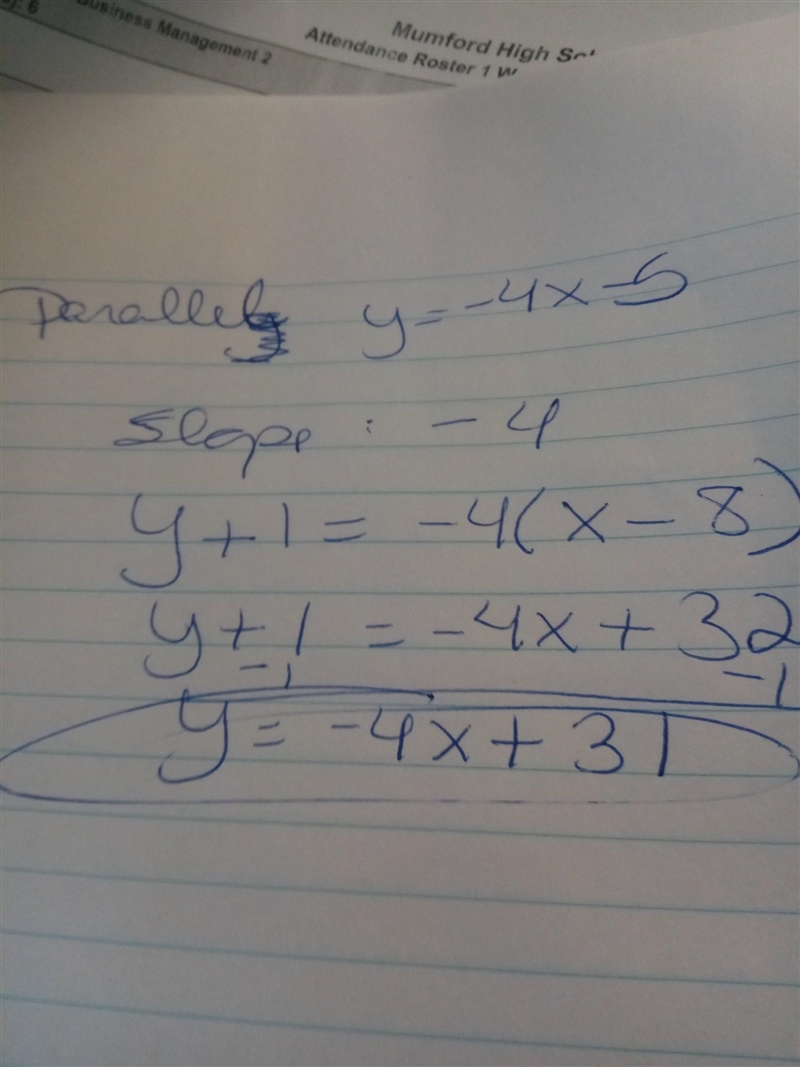 6
Business Management 2
Mumford High
Attendance Roster 1
Parallel y = -4x - 5
slope : -4
y + 1 = -4(x - 8)
y + 1 = -4x + 32
-1 -1
y = -4x + 31